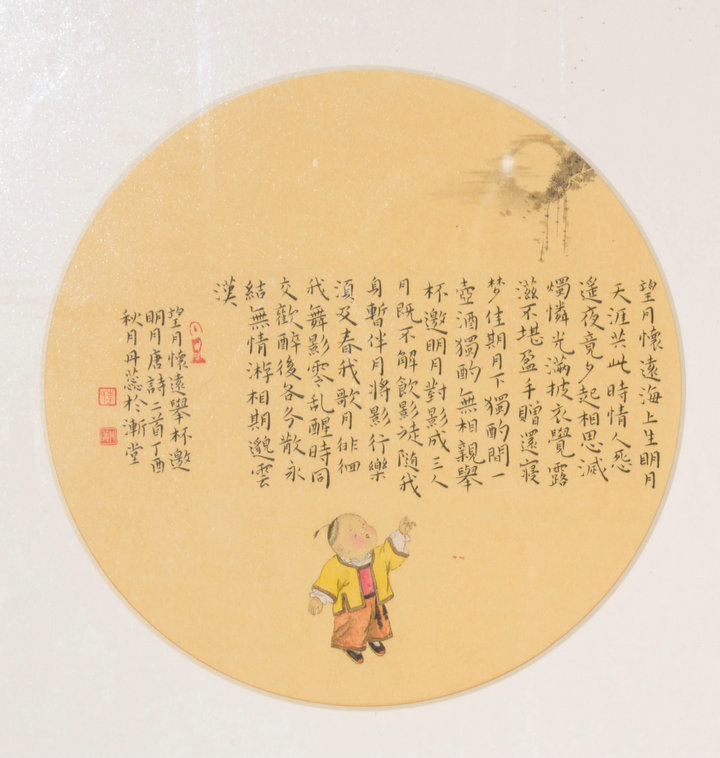 望月懷遠海上生明月
天涯共此時情人怨
遥夜竟夕起相思滅
燭憐光滿披衣覺露
滋不堪盈手贈還寢
梦佳期月下獨酌間一
壺酒獨酌無相親舉
杯邀明月對影成三人
月既不解飲影徒隨我
身暫伴月將影行樂
須及春我歌月徘徊
我舞影零乱醒時同
交歡醉後各分散永
結無情游相期邈雲
漢
望月懷遠舉杯邀
明月唐詩二首丁酉
秋月丹蕊於漸堂